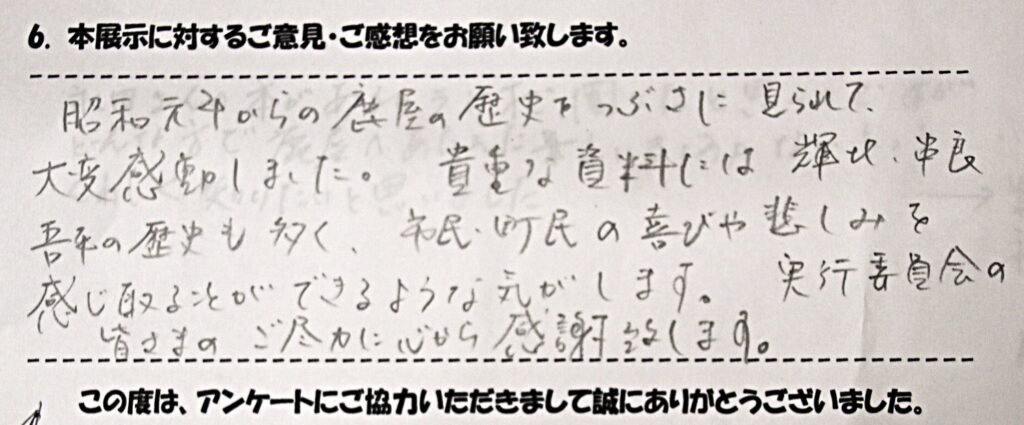 6. 本展示に対するご意見・ご感想をお願い致します。
昭和元年からの鹿屋の歴史をつぶさに見られて、
大変感動しました。 貴重な資料には 輝北、串良
吾平の歴史も多く、 市民・町民の喜びや悲しみを
感じ取ることができるような気がします。 実行委員会の
皆さまの ご尽力に心から感謝致します。
この度は、アンケートにご協力いただきまして誠にありがとうございました。